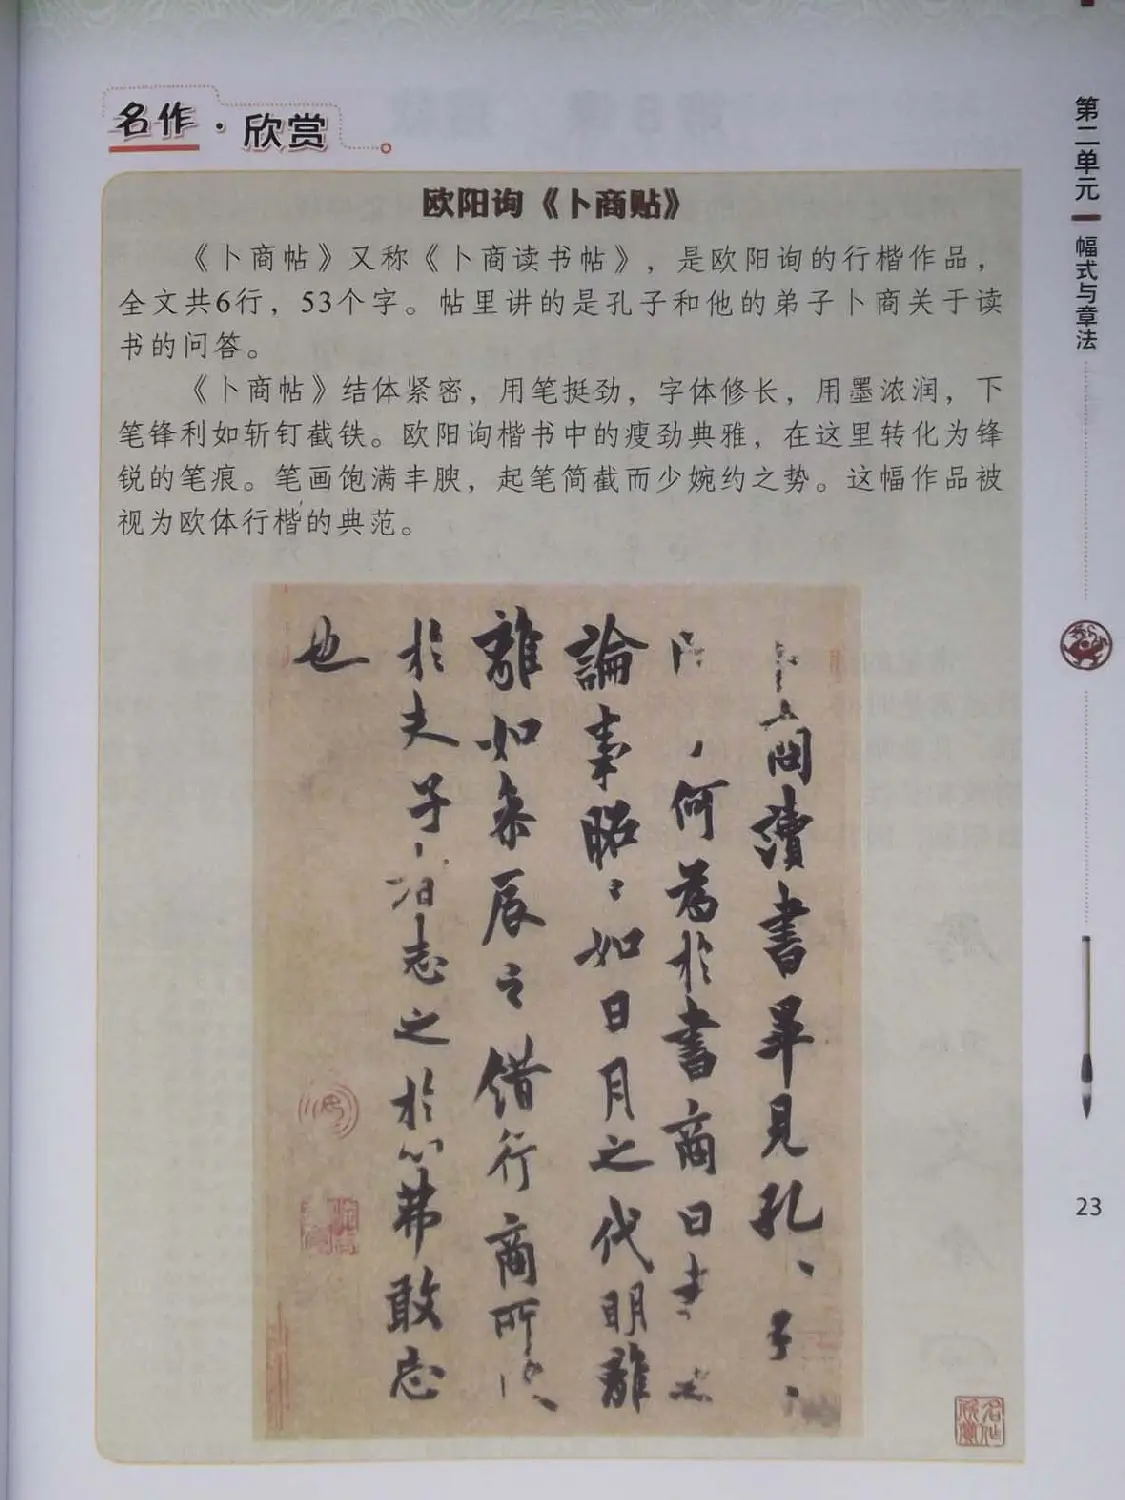 名作·欣赏
欧阳询《卜商贴》
《卜商帖》又称《卜商读书帖》，是欧阳询的行楷作品，
全文共6行，53个字。帖里讲的是孔子和他的弟子卜商关于读
书的问答。
《卜商帖》结体紧密，用笔挺劲，字体修长，用墨浓润，下
笔锋利如斩钉截铁。欧阳询楷书中的瘦劲典雅，在这里转化为锋
锐的笔痕。笔画饱满丰腴，起笔简截而少婉约之势。这幅作品被
视为欧体行楷的典范。
商讀書畢見孔〻子〻
何為於書商曰書之
論事昭〻如日月之代明離
離如參辰之錯行商所
於夫子者志之於心弗敢忘
也
第二单元 幅式与章法
23
名作欣赏